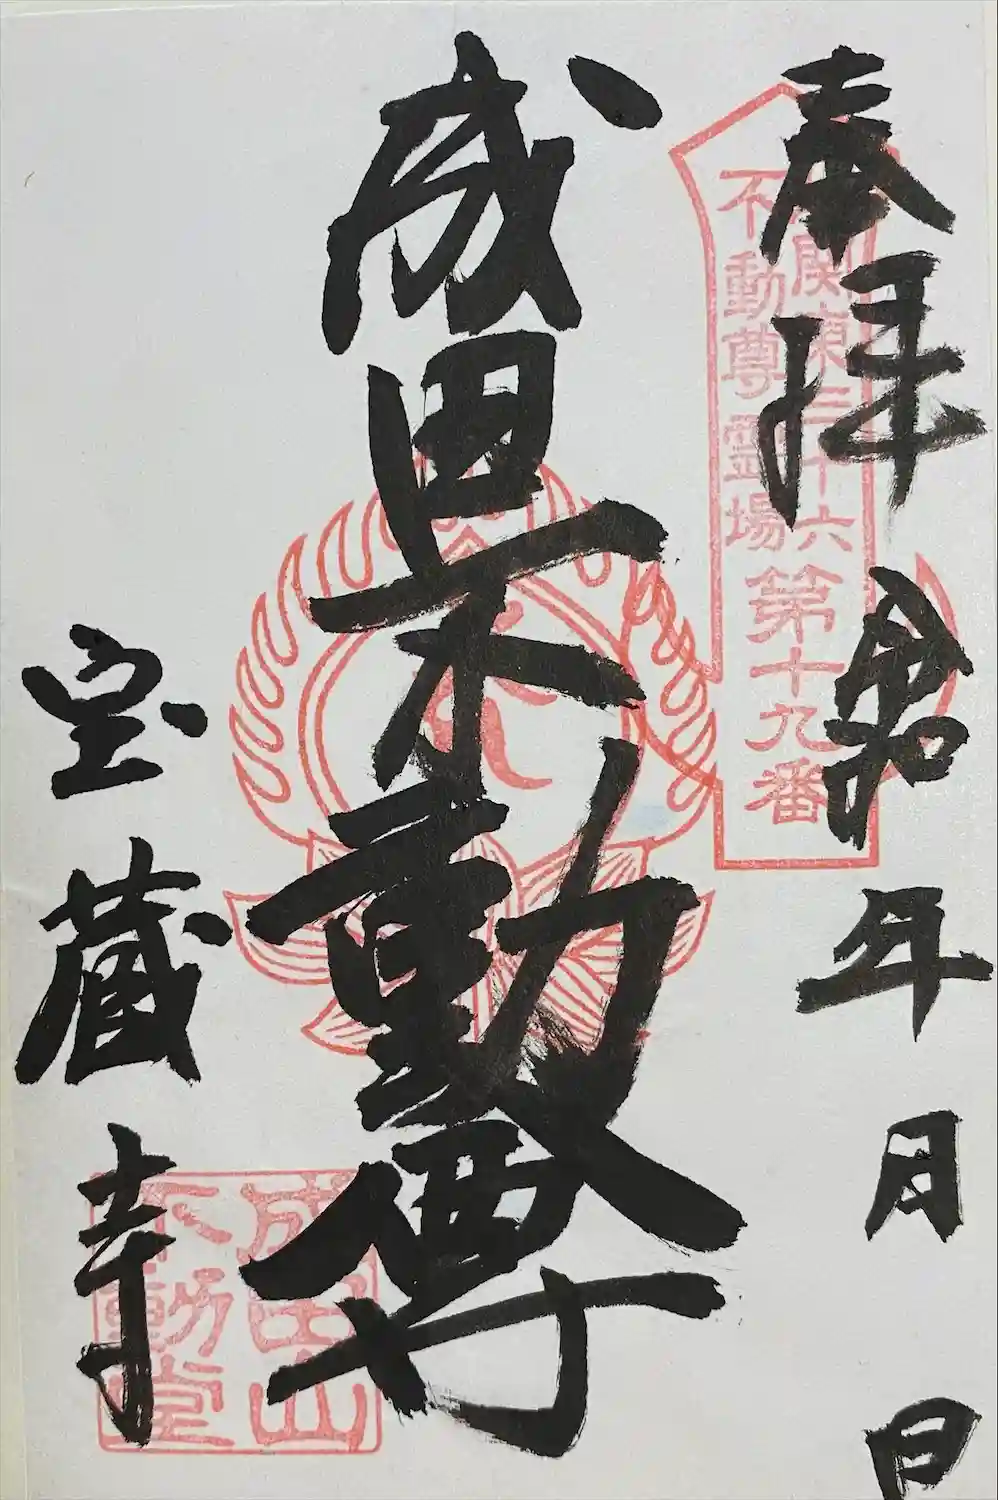 奉拝
令和 年 月 日
関東三十六
不動尊霊場
第十九番
成田不動尊
宝蔵寺
成田山
不動堂